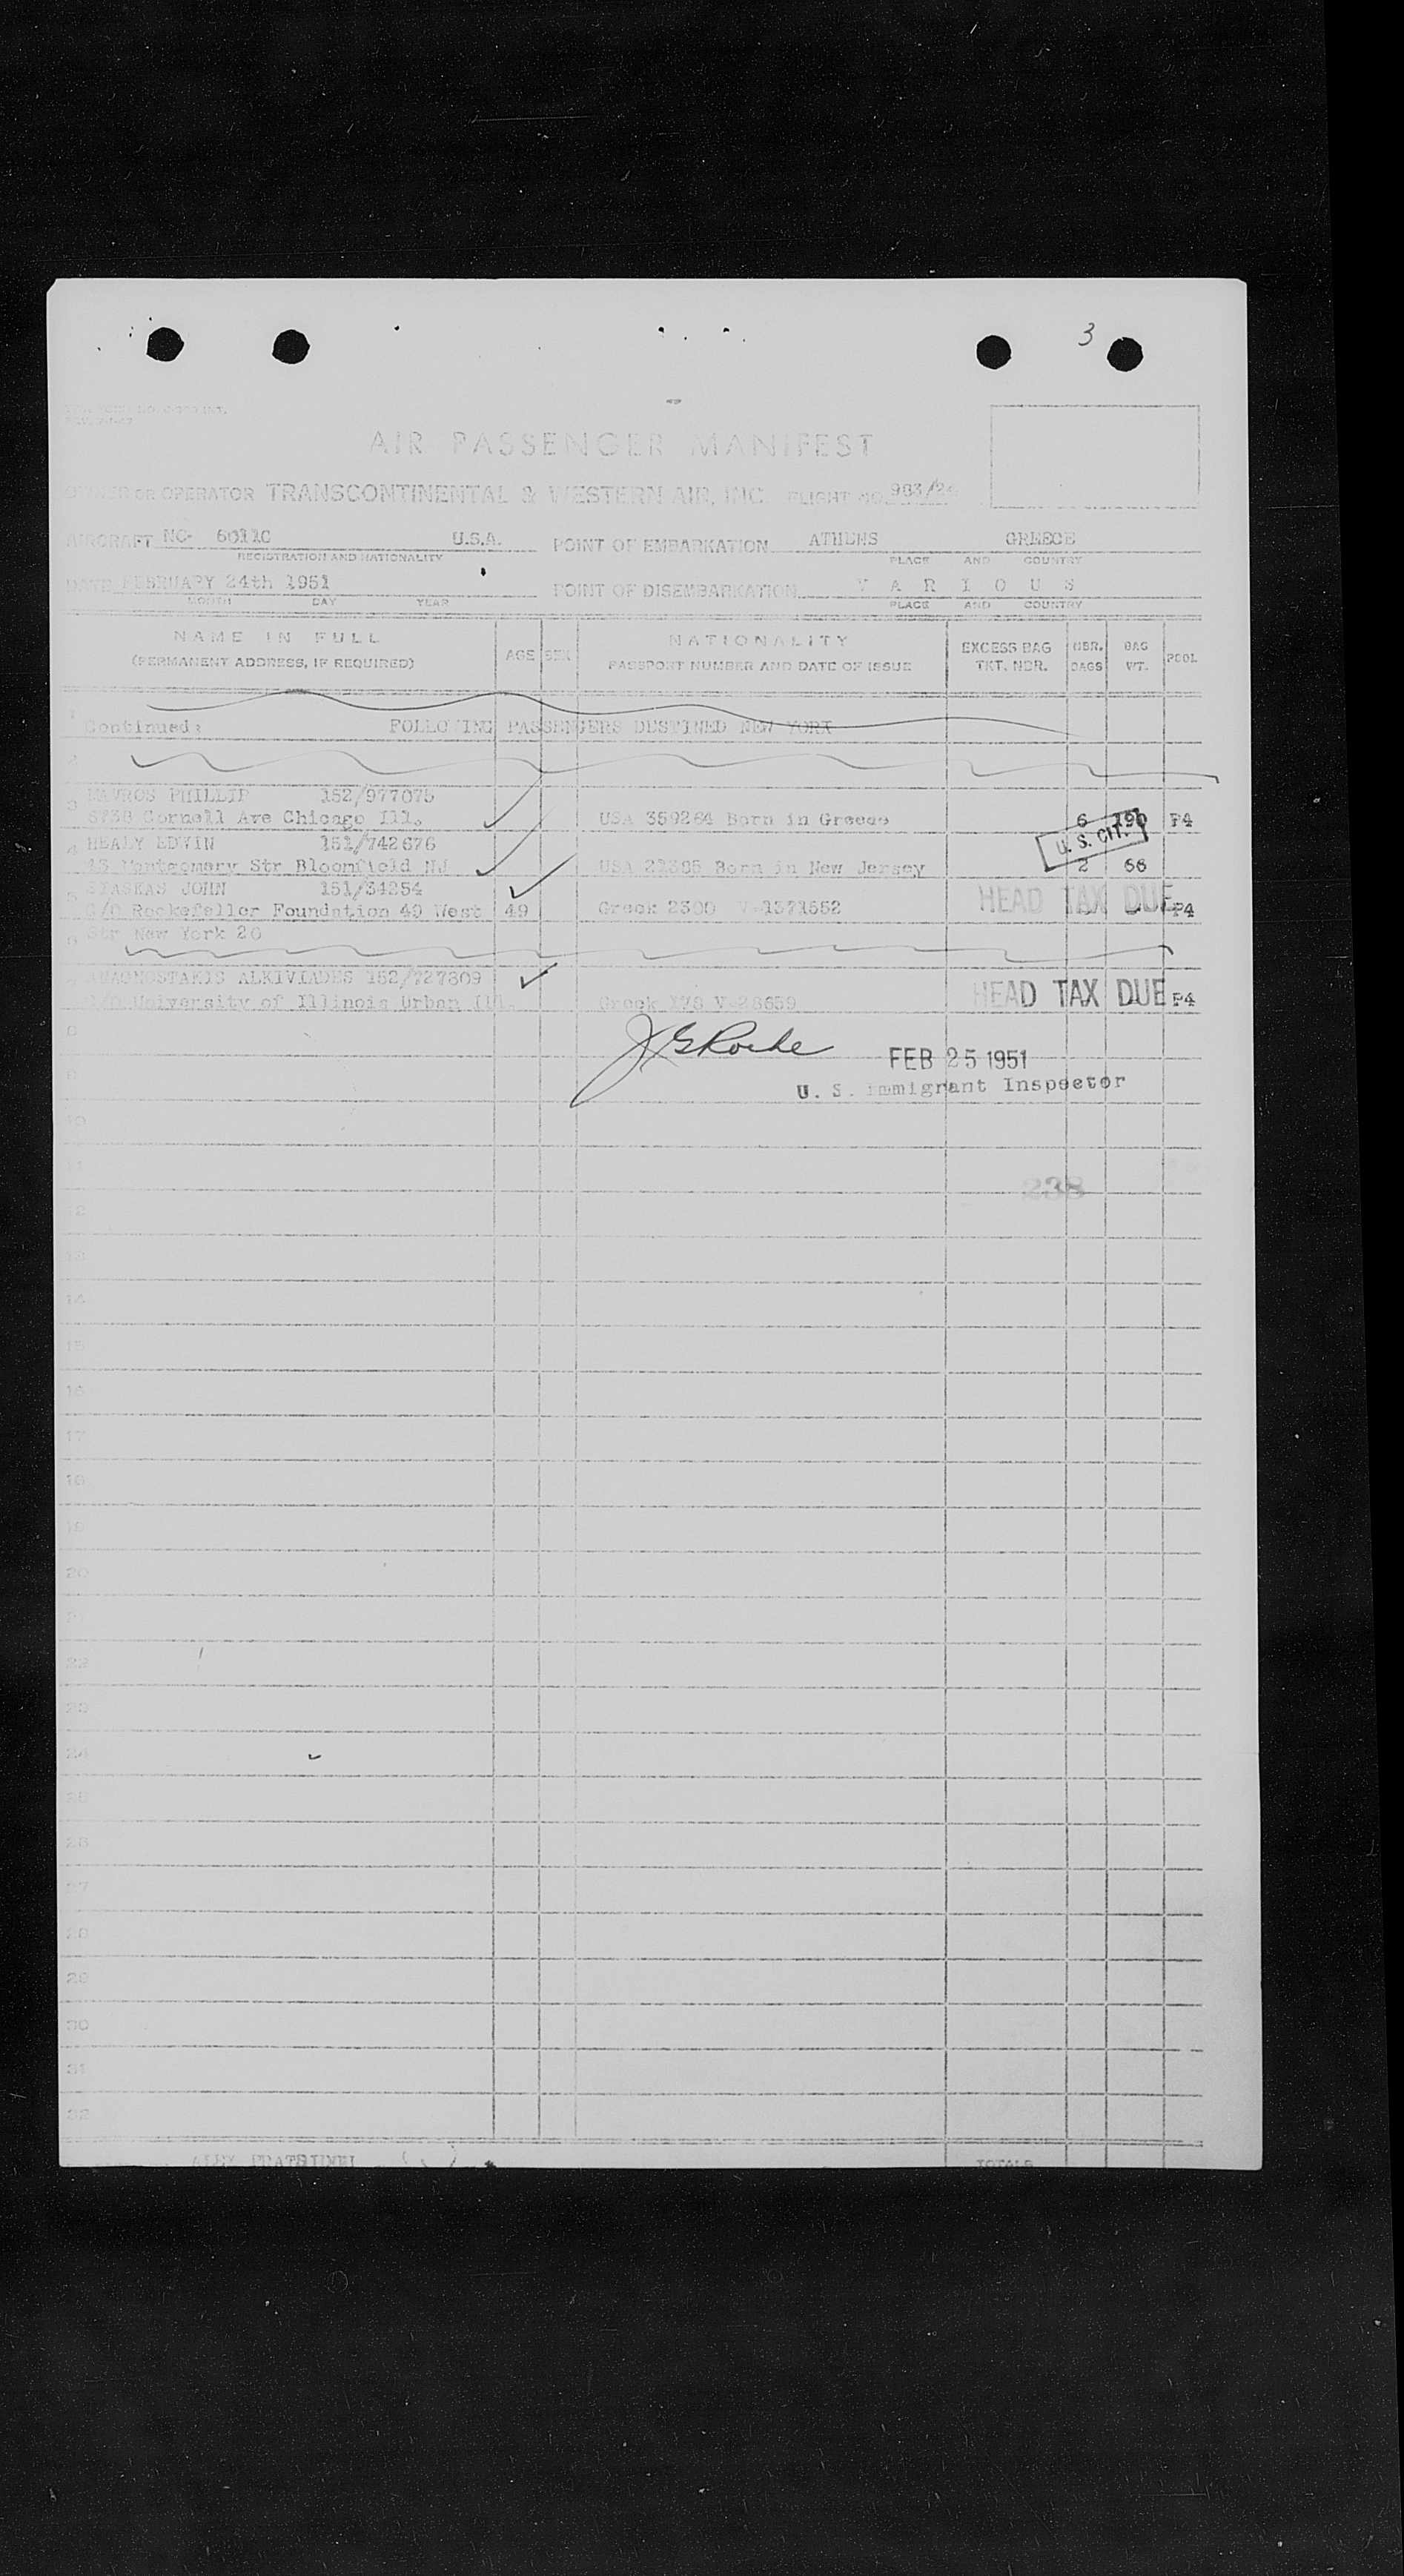 3
AIR PASSENGER MANIFEST
OR OPERATOR TRANSCONTINENTAL & WESTERN AIR, INC. FLIGHT NO. 963/24
AIRCRAFT NC- 6011C U.S.A. POINT OF EMBARKATION ATHENS GREECE
REGISTRATION AND NATIONALITY PLACE AND COUNTRY
DATE FEBRUARY 24th 1951 POINT OF DISEMBARKATION V A R I O U S
MONTH DAY YEAR PLACE AND COUNTRY
NAME IN FULL AGE SEX NATIONALITY EXCESS BAG NBR. BAG POOL
(PERMANENT ADDRESS, IF REQUIRED) PASSPORT NUMBER AND DATE OF ISSUE TKT. NBR. BAGS WT.
1
Continued: FOLLOWING PASSENGERS DESTINED NEW YORK
2
3 MAVROS PHILLIP 152/977075
5738 Cornell Ave Chicago Ill. USA 359264 Born in Greece 6 P4
U. S. CIT.
4 HEALY EDWIN 151/742676
43 Montgomery Str Bloomfield NJ USA 21305 Born in New Jersey 2 66
5 JOHN 151/34254
C/O Rockefeller Foundation 49 West 49 Greek 2300 V-1371552 HEAD TAX DUE P4
6 Str New York 20
7 ANAGNOSTAKIS ALKIVIADES 152/727809
C/O University of Illinois Urban Ill. Greek V-28659 HEAD TAX DUE P4
8
J G Roche FEB 25 1951
9
U. S. Immigrant Inspector
10
11
238
12
13
14
15
16
17
18
19
20
21
22
23
24
25
26
27
28
29
30
31
32
TOTALS